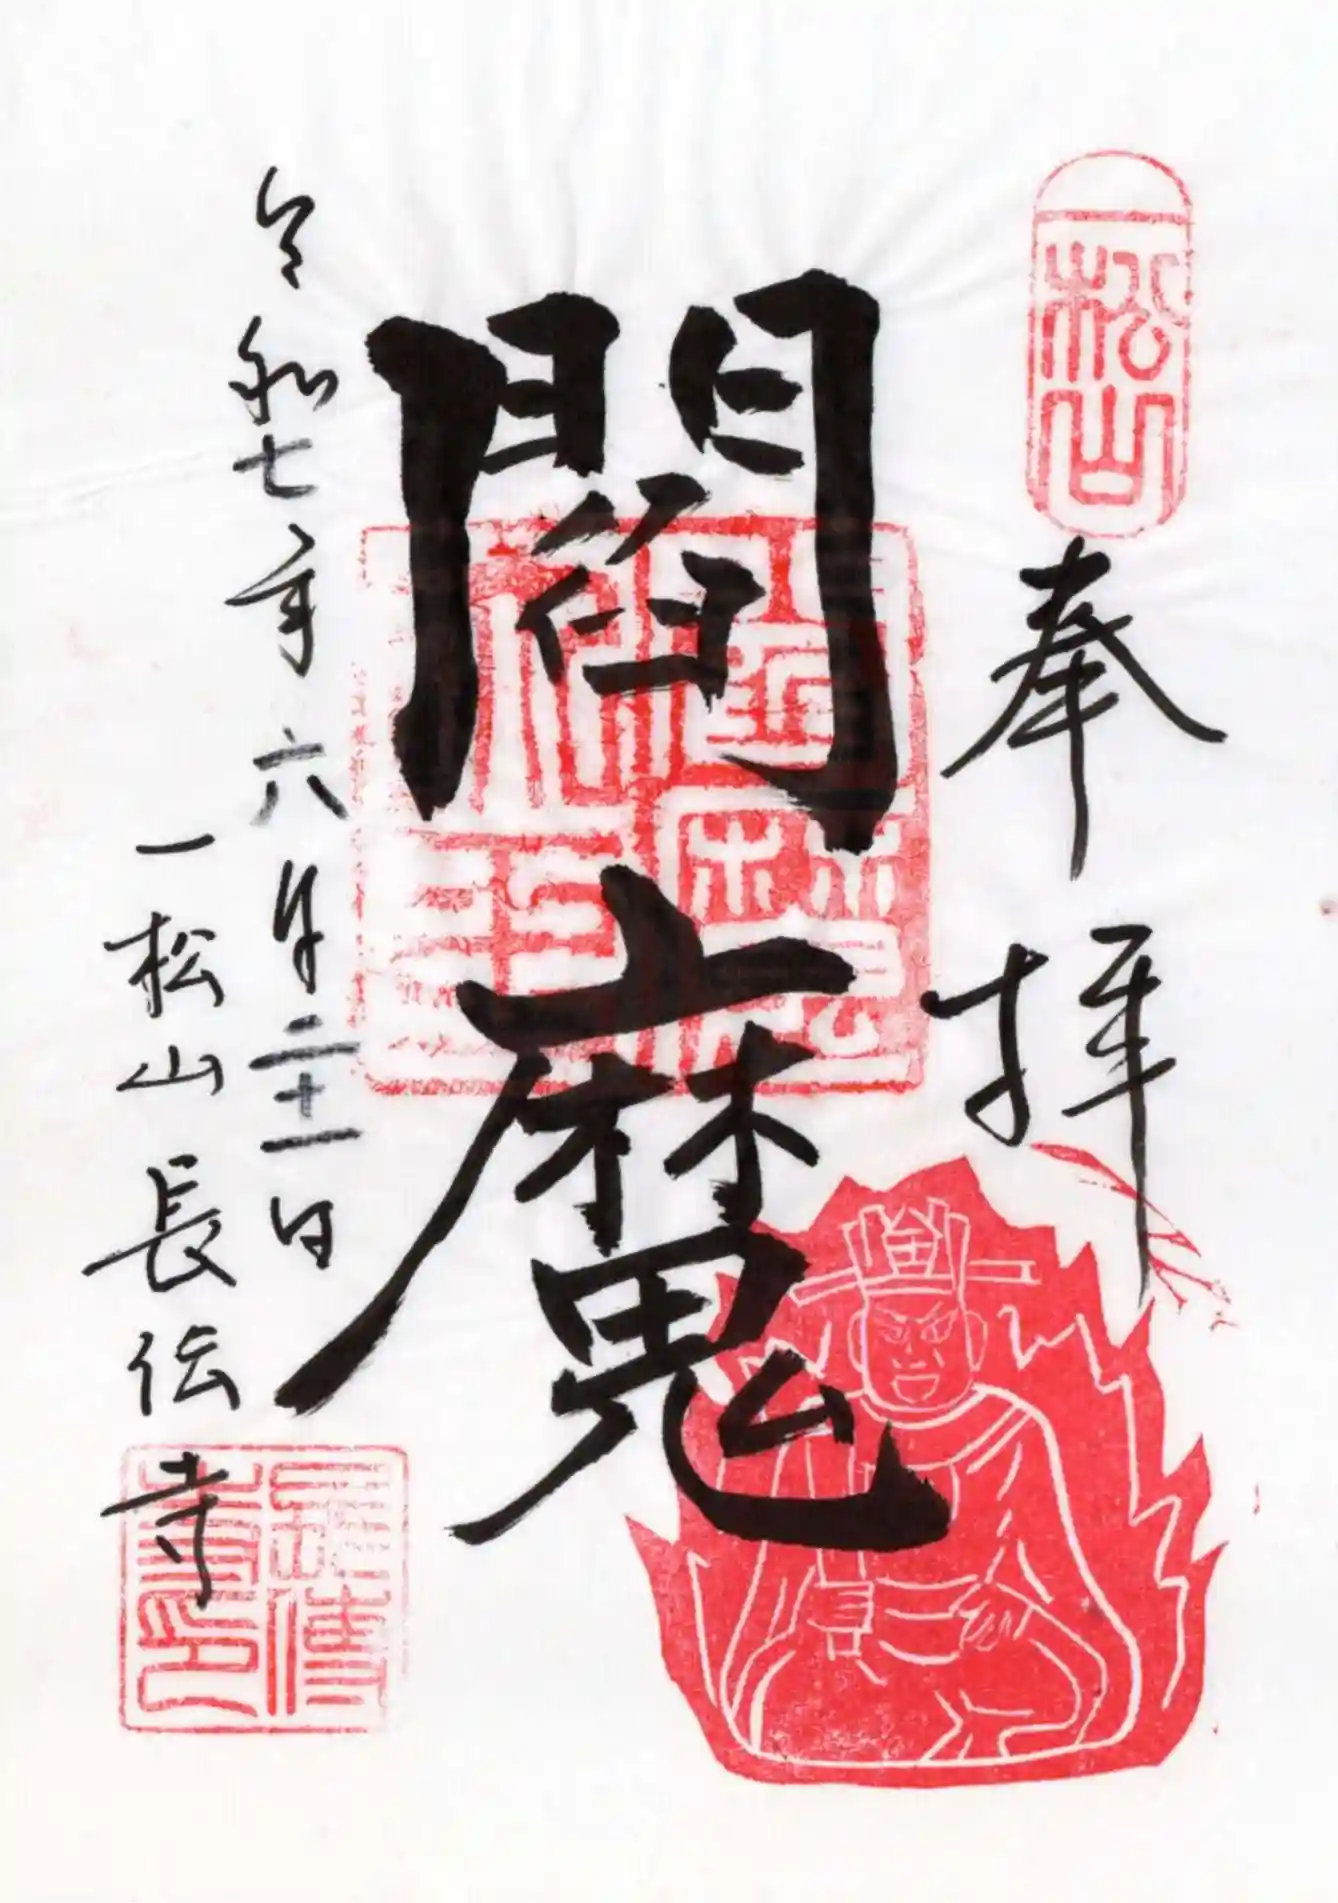 一松山
奉拝
閻魔
令和七年六月二十一日
一松山長伝寺
長傳寺印